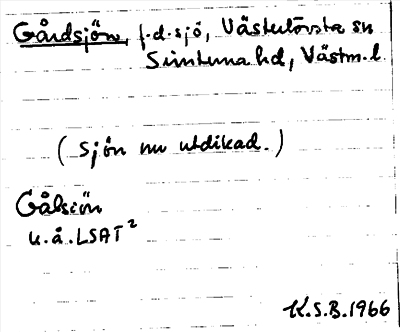 Gårdsjön, f.d. sjö, Västerlövsta sn
Simtuna hd, Västm. l.
(Sjön nu utdikad.)
Gålsiön
u.å. LSAT²
K.S.B. 1966